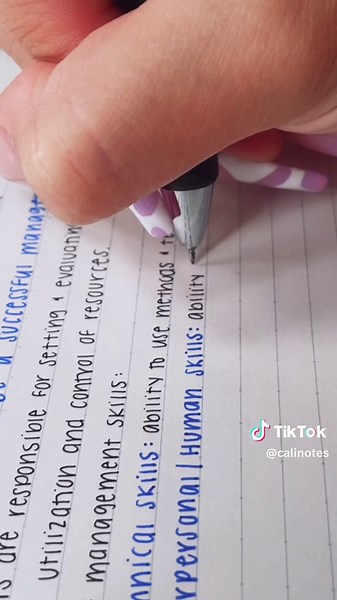 a successful manag
s are responsible for setting & evaluatin
Utilization and control of resources.
management skills:
hnical skills: ability to use methods & t
rpersonal/Human skills: ability
TikTok
@calinotes